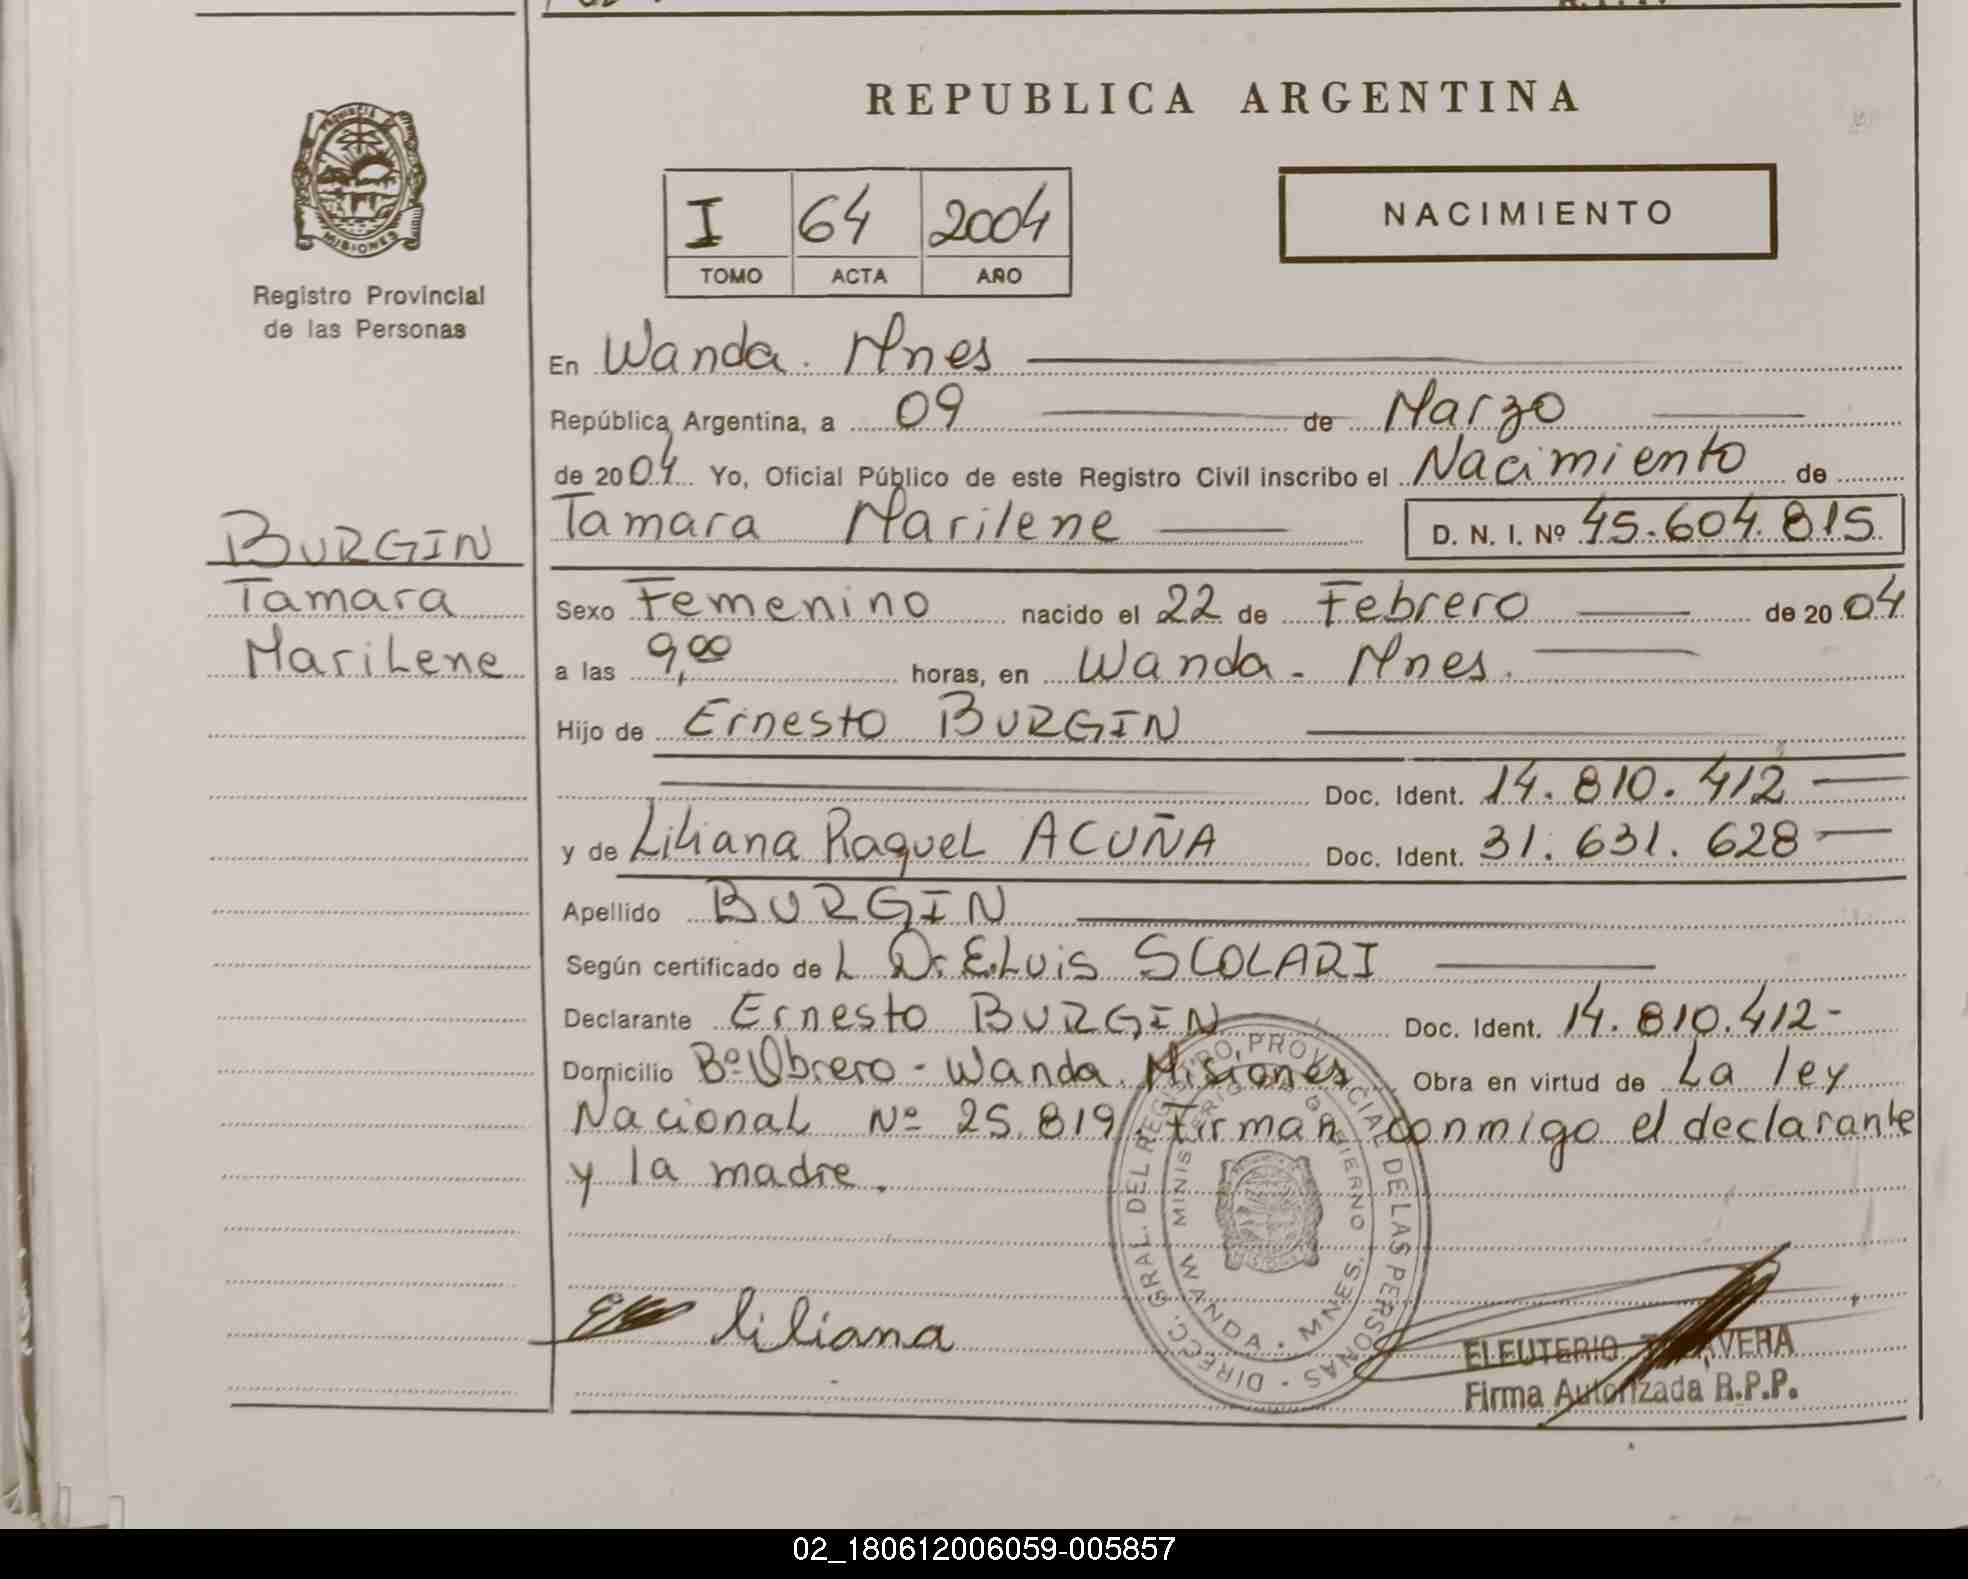 REPUBLICA ARGENTINA
PROVINCIA DE
MISIONES
Registro Provincial
de las Personas
I 64 2004
TOMO ACTA AÑO
NACIMIENTO
BURGIN
Tamara
Marilene
En Wanda. Mnes
República Argentina, a 09 de Marzo
de 2004 Yo, Oficial Público de este Registro Civil inscribo el Nacimiento de
Tamara Marilene D. N. I. Nº 45.604.815
Sexo Femenino nacido el 22 de Febrero de 2004
a las 9,00 horas, en Wanda - Mnes.
Hijo de Ernesto BURGIN
Doc. Ident. 14.810.412
y de Liliana Raquel ACUÑA Doc. Ident. 31.631.628
Apellido BURGIN
Según certificado de L Dr. E. Luis SCOLARI
Declarante Ernesto BURGIN Doc. Ident. 14.810.412-
Domicilio Bº Obrero - Wanda. Misiones Obra en virtud de La ley
Nacional Nº 25.819. Firman conmigo el declarante
y la madre.
DIRECC. GRAL. DEL REGISTRO PROVINCIAL DE LAS PERSONAS
MINISTERIO DE GOBIERNO
WANDA - MNES.
liliana
ELEUTERIO
Firma Autorizada R.P.P.
02_180612006059-005857